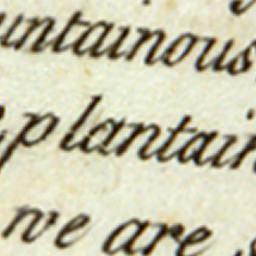 untainous
plantain
we are